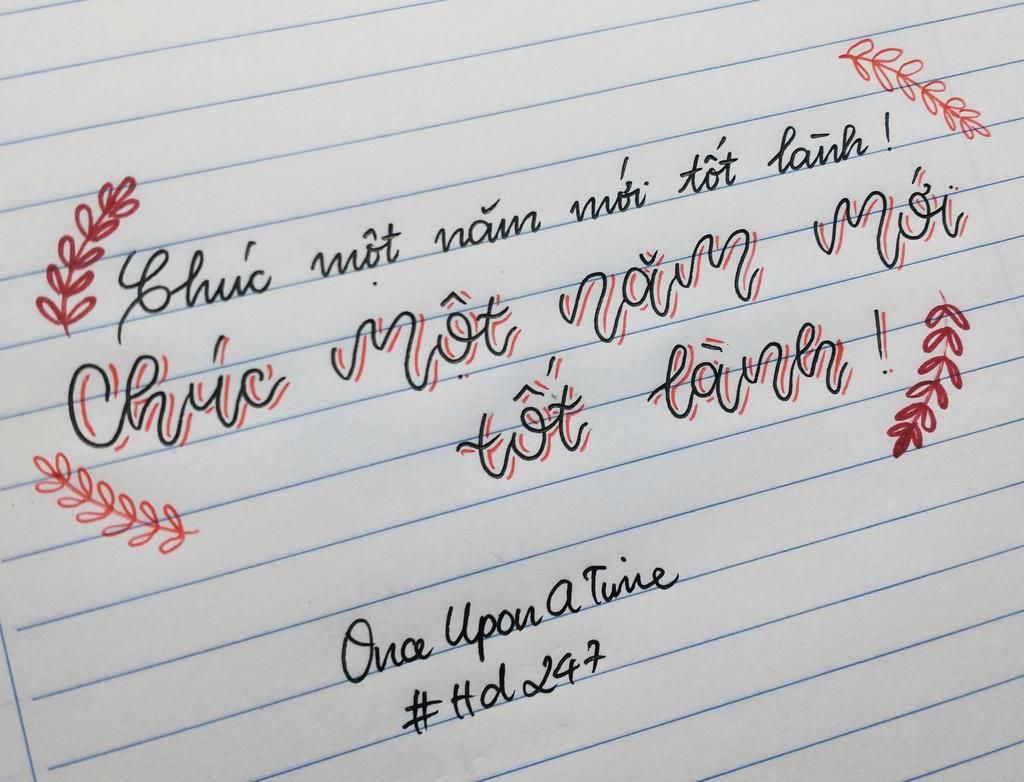 Chúc một năm mới tốt lành!
Chúc một năm mới
tốt lành!
Once Upon A Time
#Hd247